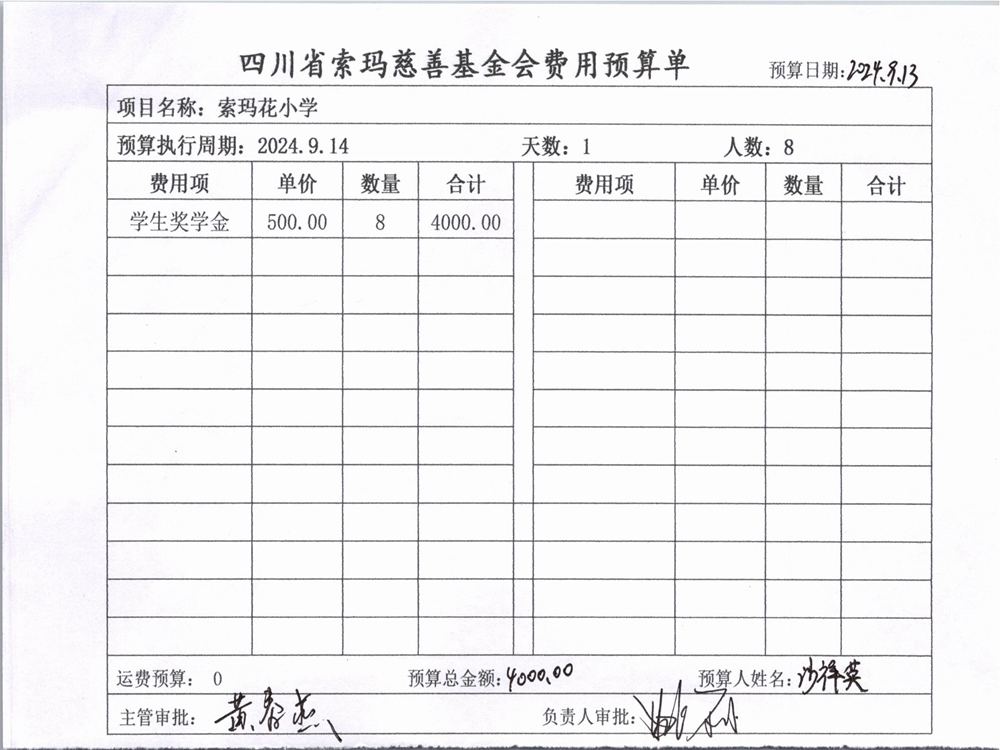 四川省索玛慈善基金会费用预算单
预算日期:2024.9.13
项目名称：索玛花小学
预算执行周期：2024.9.14 天数：1 人数：8
费用项 单价 数量 合计 费用项 单价 数量 合计
学生奖学金 500.00 8 4000.00
运费预算： 0 预算总金额:4000.00 预算人姓名:沙祥英
主管审批： 负责人审批: